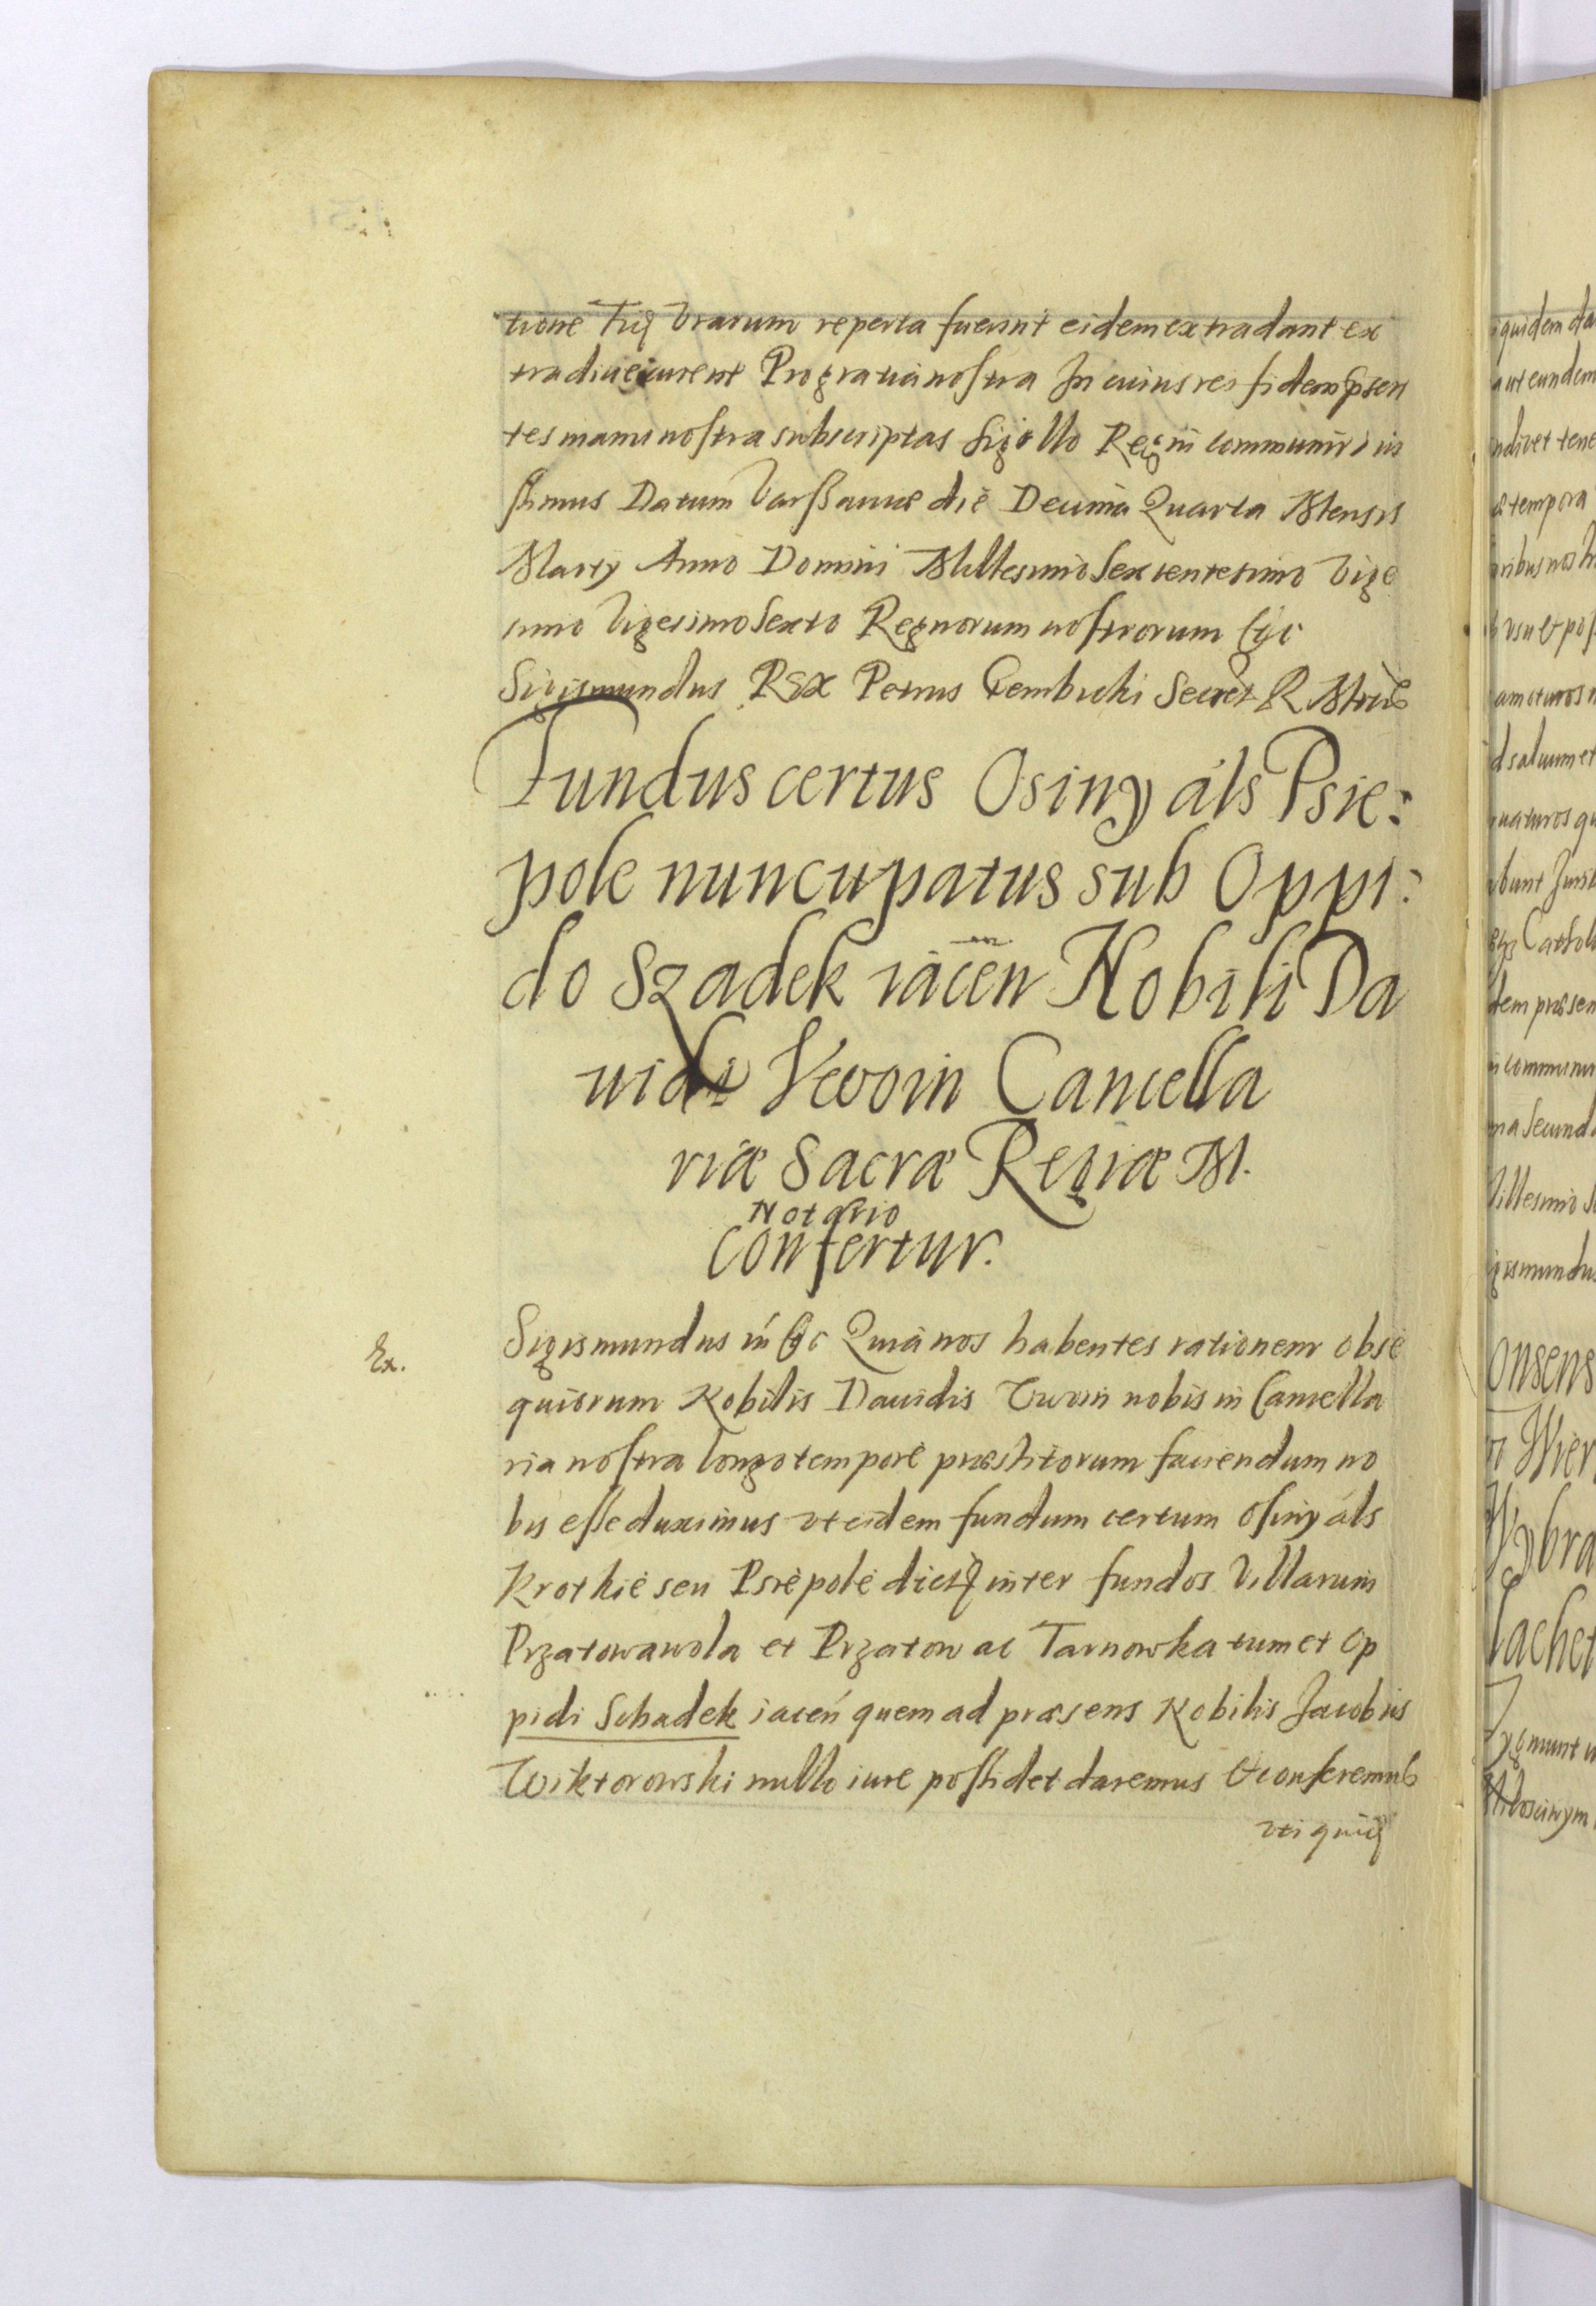 tione Vrarum reperta fuerint eidem extradant ex
tradiue curent Pro gratia nostra In cuius rei fidem pſen
tes manu nostra subscriptas Sigillo Regni communiri ius
simus Datum Varsſauiae die Decima Quarta Mensis
Martÿ Anno Domini Millesimo Sexcentesimo Vige
simo Vigesimo Sexto Regnorum nostrorum Etc
Sigismundus Rex Petrus Gembicki Secret R
Fundus certus Osiny als Psie:
pole nuncupatus sub Oppi:
do Szadek iacen Nobili Da
uidi Cancella
riæ Sacræ Regiæ M.
Notario
confertur.
Ex.
Sigismundus iii Etc Quia nos habentes rationem obse
quiorum Nobilis Dauidis nobis in Cancella
ria nostra longo tempore præstitorum faciendum no
bis esse duximus vt eidem fundum certum Osiny als
Krotkie seu Psiepole inter fundos Villarum
Przatowawola et Przatow ac Tarnowka tum et Op
pidi Schadek iacen quem ad præsens Nobilis Jacobus
Wiktorowski nullo iure possidet daremus & conferemus
vti
iquidem da
aut eundem
ndicet tene
& tempora
b vsu & pos
d saluum et
bunt
dem præsen
i communi
ma Secund
gismundus
onsens
Wier
Wybra
lachet
ygmunt